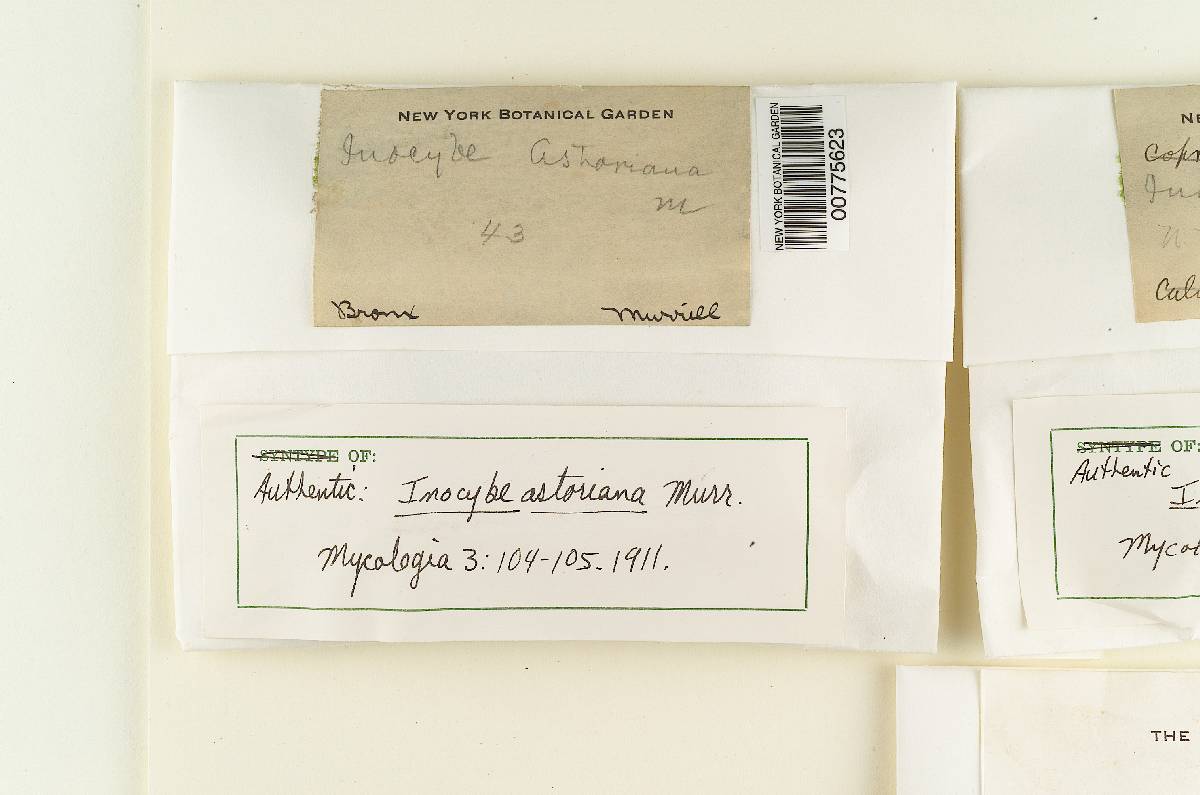 NEW YORK BOTANICAL GARDEN
Inocybe Astoriana
M
43
Bronx Murrill
NEW YORK BOTANICAL GARDEN
00775623
SYNTYPE OF:
Authentic: Inocybe astoriana Murr.
Mycologia 3: 104-105. 1911.
SYNTYPE OF:
Authentic
THE